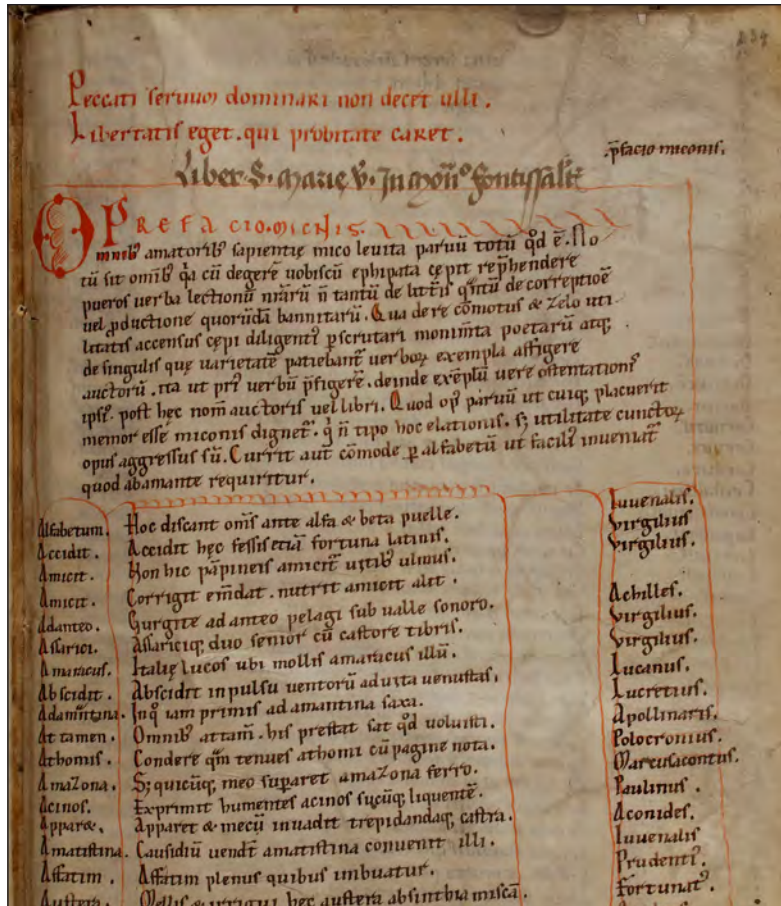 234
Peccati seruum dominari non decet ulli.
Libertatis eget. qui probitate caret.
p̄facio miconis.
Liber S. Marie V. In
PREFACIO. MICONIS.
Omnib; amatorib; sapientię mico leuita paruū totū qd̄ ē. No
tū sit omīb; qa cū degerē uobiscū ephipata cępit rep̄hendere
pueros uerba lectionū nr̄arū n̄ tantū de litt̄is q̄ntū de correptioē
uel ꝓductione quorūdā bannitarū. Qua de re cōmotus & zelo uti
litatis accensus cępi diligent᷒ ꝑscrutari monim̄ta poetarū atq;
de singulis quę uarietatē patiebant᷒ uerboꝝ exempla affigere
auctorū. ita ut pri᷒ uerbū p̄figerē. deinde exēplū uere ostentationis
ipsi᷒. post hęc nom̄ auctoris uel libri. Quod op᷒ paruū ut cuiq; placuerit
memor esse miconis dignet᷒. q̄ n̄ tipo hoc elationis. s; utilitate cunctoꝝ
opus aggressus sū. Currit aut̄ cōmode ꝑ alfabetū ut facili᷒ inueniat᷒
quod ab amante requiritur.
Alfabetum. Hoc discunt om̄s ante alfa & beta puelle. Iuuenalis.
Accidit. Accidit hęc fessis etiā fortuna latinis. Virgilius
Amicit. Non hic pāpineis amicit᷒ uitib; ulmus. Virgilius.
Amicit. Corrigit em̄dat. nutrit amicit alit.
Adanteo. Gurgite ad anteo pelagi sub ualle sonoro. Achilles.
Assarici. Assariciq; duo senior cū castore tibris. Virgilius.
Amaracus. Italię lucos ubi mollis amaracus illū. Virgilius.
Abscidit. Abscidit inpulsu uentorū adiuta uenustas. Lucanus.
Adamintina. Inq; iam primis adamantina saxa. Lucretius.
At tamen. Omnib; attam̄. his prestat sat qd̄ uoluisti. Apollinaris.
Athomis. Condere qm̄ tenues athomi cū pagine nota. Polocronius.
Amazona. S; quicūq; meo suꝑaret amazona ferro. Marcusacontus.
Acinos. Exprimit humentes acinos sucūq; liquentē. Paulinus.
Appar&. Apparet & mecū inuadit trepidandaq; castra. Aconides.
Amatistina. Causidiū uend᷒t amatistina conuenit illi. Iuuenalis
Affatim. Affatim plenus quibus imbuatur. Prudenti᷒.
Austera. Mellis & irrigui hęc austera absinthia miscā. Fortunat᷒.